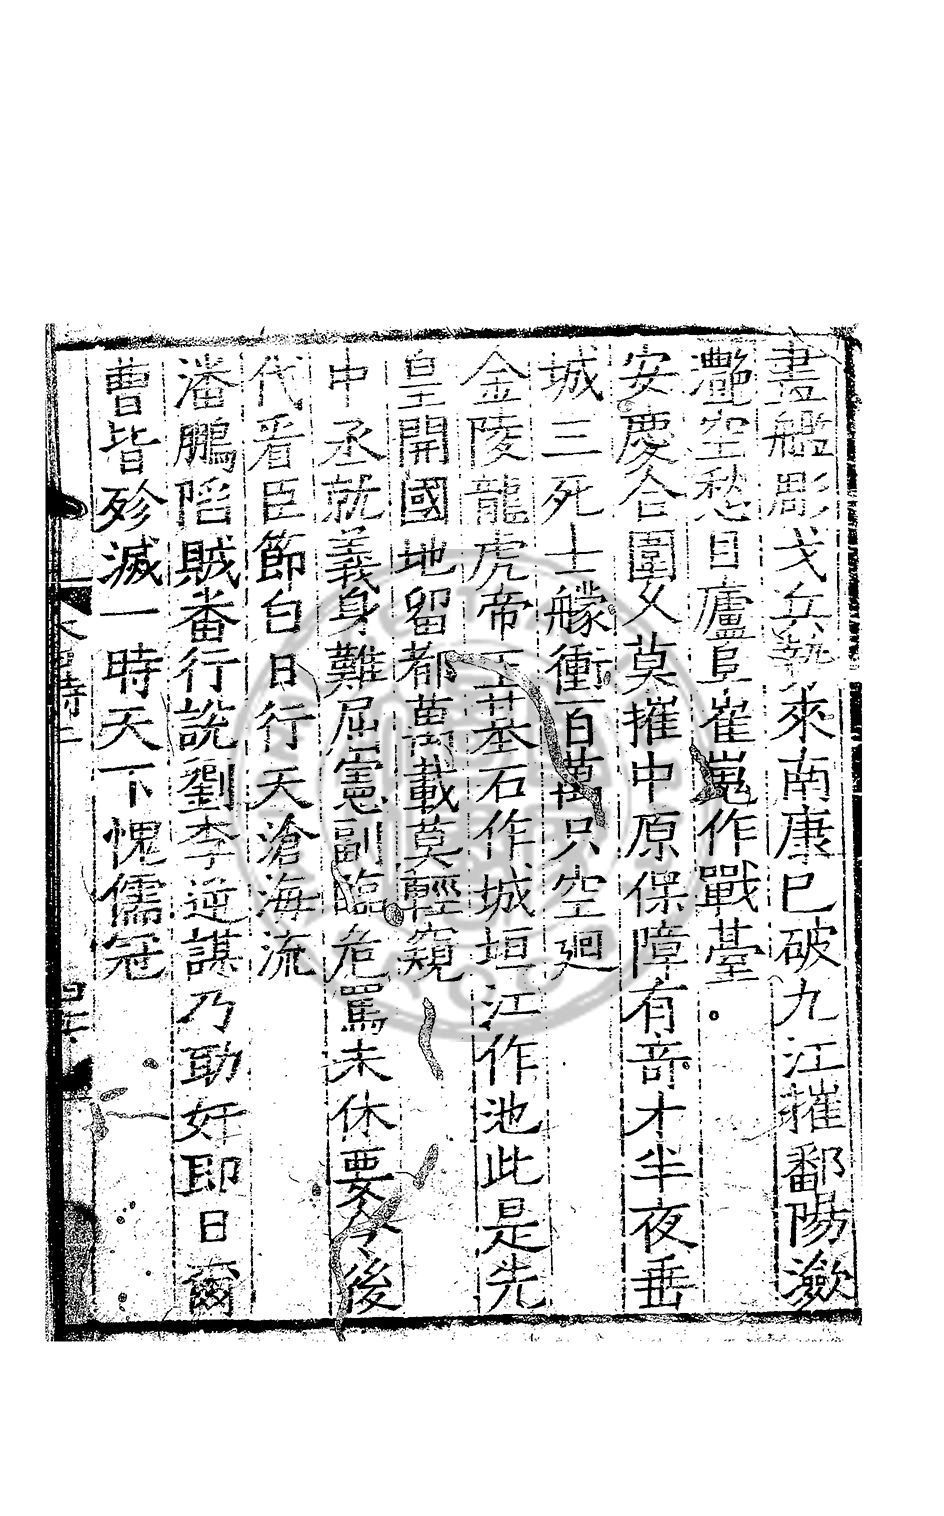 畫艦彫戈兵勢來南康已破九江摧鄱陽瀲
灔空愁目廬阜崔嵬作戰臺。
安慶合圍攻莫摧中原保障有竒才半夜垂
城三死士艨衝百萬只空廻
金陵龍虎帝王基石作城垣江作池此是先
皇開國地留都萬載莫輕窺
中丞就義身難屈憲副臨危罵未休要令後
代看臣節白日行天滄海流
潘鵬陷賊畨行說劉李逆謀乃助奸即日爾
曹皆殄滅一時天下愧儒冠